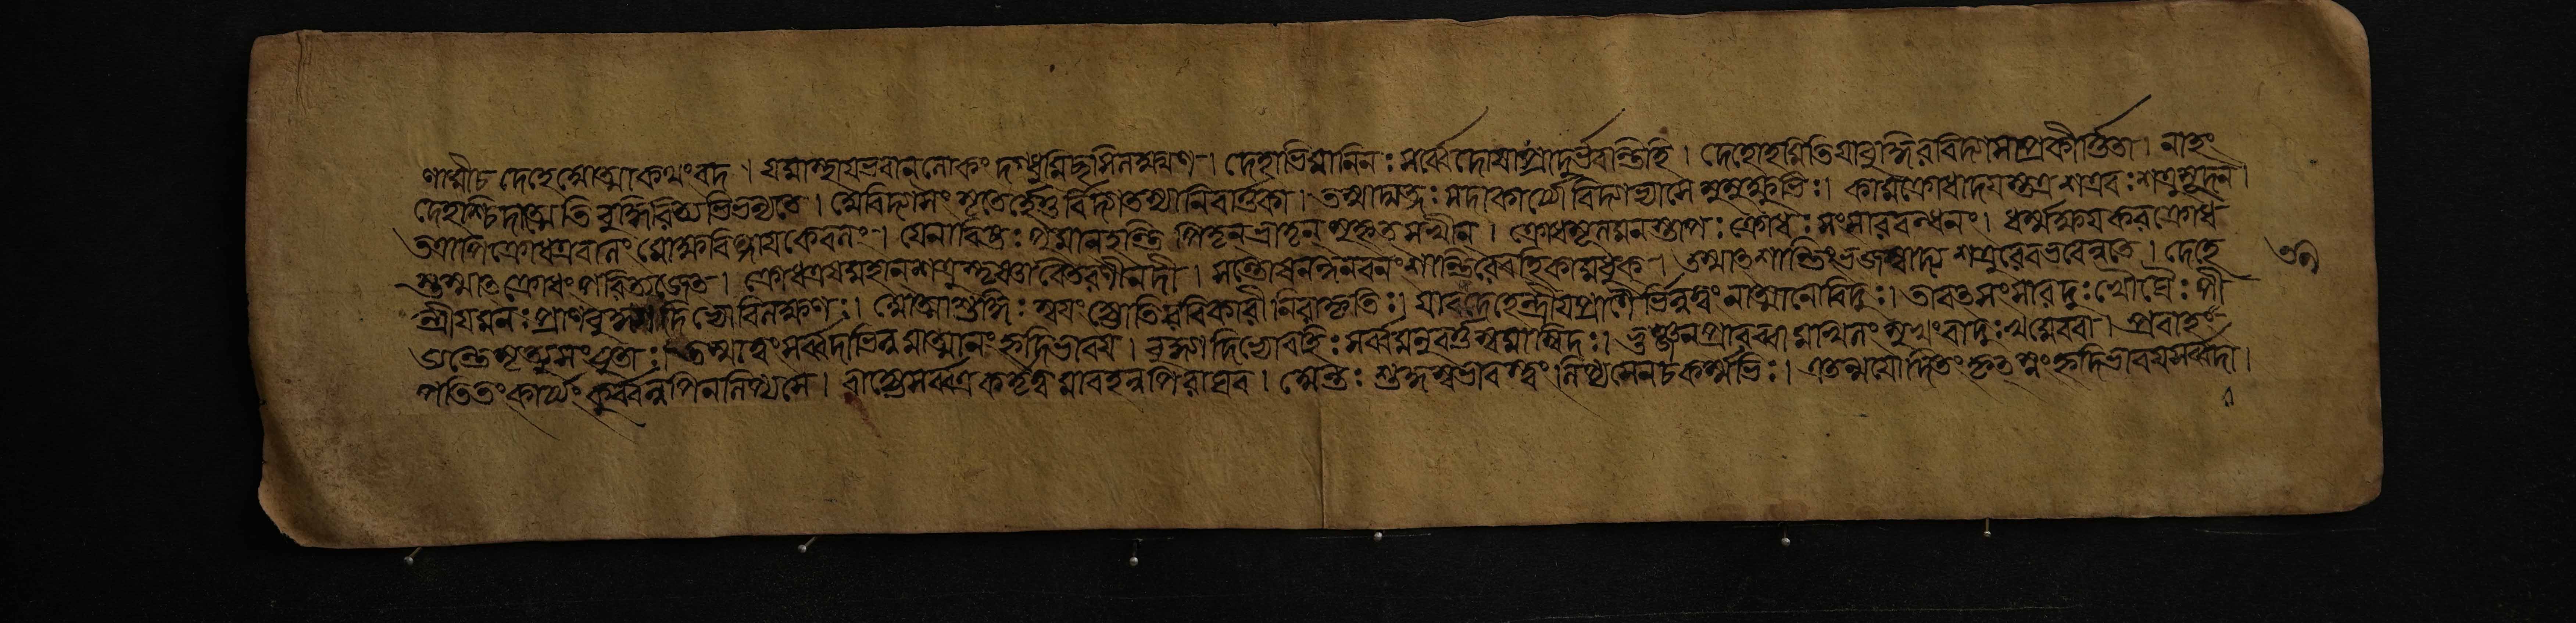 ণামীচ দেহেআত্মাকথংবদ । যমাস্থাযভবানলোকং দগ্ধুমিচ্ছসিলক্ষ্মণ । দেহাভিমানিনঃ সর্ব্বেদোষাপ্রাদুর্ভবান্তিহি । দেহোহমিতিযাবুদ্ধিরবিদ্যাসাপ্রকীর্ত্তিতা । নাহং
দেহাশ্চিদাত্মেতি বুদ্ধিরিত্যভিভণ্যতে । অবিদ্যাসংসৃতের্হেতুর্বিদ্যাতস্যানিবার্ত্তকা । তস্মাদ্যত্নঃ সদাকার্য্যোবিদ্যাভ্যাসে মুমুক্ষুভিঃ । কামক্রোধাদযস্তত্র শত্রবঃ শত্রুসূদন ।
তত্রাপিক্রোধএবালং মোক্ষবিঘ্নাযকেবলং । যেনাবিষ্টঃ পুমানহন্তি পিতৃনভ্রাতৃন সুহৃত্সখীন । ক্রোধমূলমনস্তাপঃ ক্রোধঃ সংসারবন্ধনং । ধর্ম্মক্ষযকরক্রোধ
স্তস্মাত্ক্রোধং পরিত্যজেত । ক্রোধএষমহানশত্রুস্তৃষ্ণাবৈতরণীনদী । সন্তোষনন্দনবনংশান্তিরেবহিকামধুক । তস্মাত্শান্তিংভজস্বাদ্য শত্রুরেবভবেন্নতে । দেহে ৩৭
ন্দ্রীযমনঃপ্রাণবুদ্ধ্যাদিভ্যোবিলক্ষণঃ । আত্মাশুদ্ধিঃ স্বযংজ্যোতিরবিকারী নিরাকৃতিঃ । যাবদ্দেহেন্দ্রীযপ্রাণৈর্ভিন্নত্বংনাত্মানোবিদুঃ । তাবত্সংসারদুঃখৌঘৈঃ পী
ড্যন্তেমৃত্যুসংযুতাঃ । তস্মাত্ত্বংসর্ব্বদাভিন্নমাত্মানং হৃদিভাবয । বুদ্ধ্যাদিভ্যোবহিঃ সর্ব্বমনুবর্ত্তস্বমাখিদঃ । ভুঞ্জনপ্রারব্ধ সুখংবাদুঃখমেববা । প্রবাহ
পতিতংকার্য্যংকুর্ব্বন্নপিনলিপ্যসে । বাহ্যেসর্ব্বত্রকর্তৃত্বমাবহন্নপিরাঘব । অন্তঃ শুদ্ধস্বভাবস্ত্বংলিপ্যসেনচকর্ম্মভিঃ । এতন্মযোদিতংকৃত্স্নংহৃদিভাবযসর্ব্বদা ।